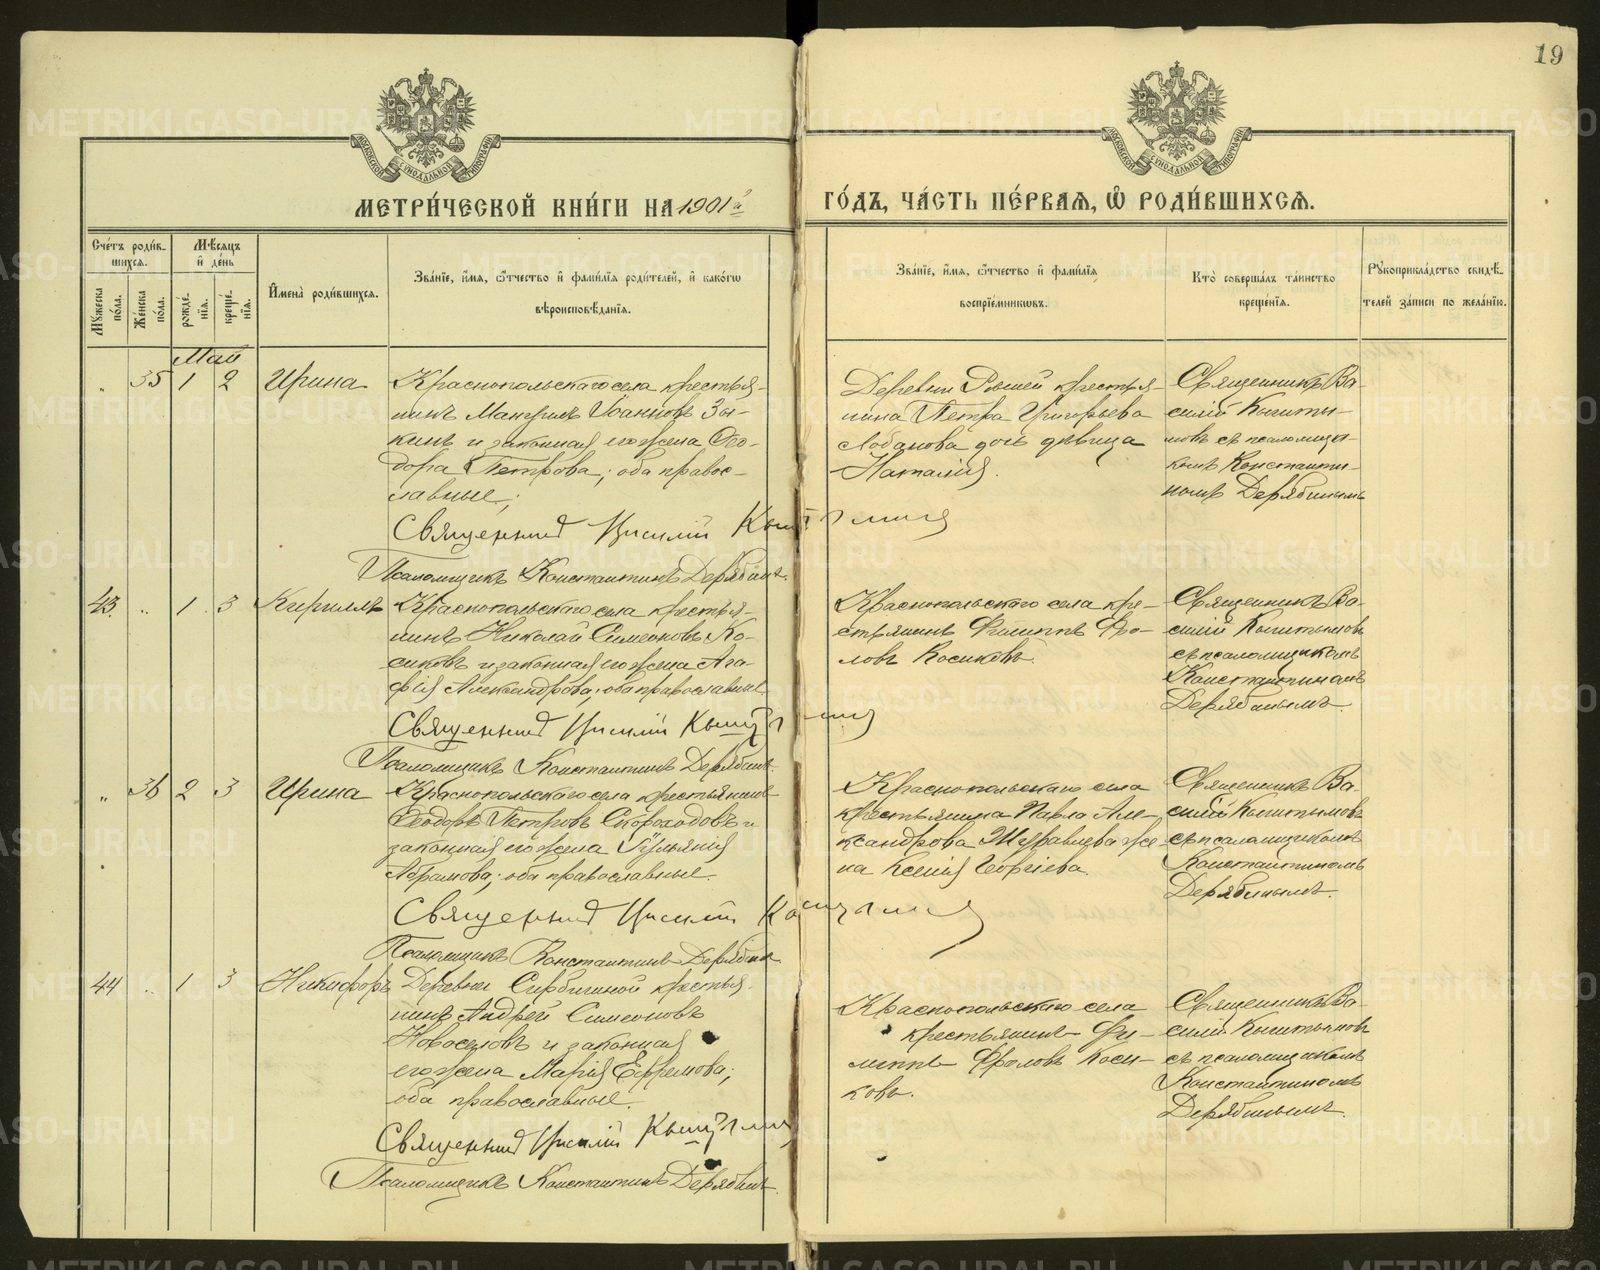 19
МОСКОВСКОЙ СѴНОДАЛЬНОЙ ТИПОГРАФІИ
МОСКОВСКОЙ СѴНОДАЛЬНОЙ ТИПОГРАФІИ
МЕТРИ́ЧЕСКОЙ КНИ́ГИ НА 1901й
ГО́ДЪ, ЧА́СТЬ ПЕ́РВАЯ, Ѡ РОДИ́ВШИХСЯ.
Сче́тъ роди́в-
шихся.
Мѣ́сяцъ
и҆ де́нь
Му́жеска
по́ла.
Же́нска
по́ла.
рожде́-
нїя.
креще́-
нїя.
И҆мена̀ роди́вшихся.
Зва́нїе, и҆́мя, ѻ҆́тчество и҆ фами́лїя роди́телей, и҆ како́гѡ
вѣроисповѣ́данїя.
Зва́нїе, и҆́мя, ѻ҆́тчество и҆ фами́лїя
воспрїе́мникѡвъ.
Кто̀ соверша́лъ та́инство
креще́нїя.
Рꙋкоприкла́дство свидѣ́-
телей за́писи по жела́нїю.
Май
„ 35 1 2 Ирина
Краснопольскаго села крестья-
нинъ Іоанновъ Зы-
кинъ и законная его жена Ѳео-
дора Петрова; оба правос-
лавные;
Священникъ Василій Кыштымовъ
Псаломщикъ Константинъ Дерябинъ
Деревни крестья-
нина Петра Григорьева
Лобанова дочь девица
Наталія.
Священникъ Ва-
силій Кышты-
мовъ съ псаломщи-
комъ Константи-
номъ Дерябинымъ
43. „ 1 3 Кириллъ
Краснопольскаго села крестья-
нинъ Николай Симеоновъ Ко-
сиковъ и законная его жена Ага-
фія Александрова; оба православные
Священникъ Василій Кыштымовъ
Псаломщикъ Константинъ Дерябинъ
Краснопольскаго села кре-
стьянинъ Филиппъ Фро-
ловъ Косиковъ.
Священникъ Ва-
силій Кыштымовъ
съ псаломщикомъ
Константиномъ
Дерябинымъ.
„ 36 2 3 Ирина
Краснопольскаго села крестьянинъ
Ѳеодоръ Петровъ Скороходовъ и
законная его жена Іульянія
Абрамова; оба православные.
Священникъ Василій Кыштымовъ
Псаломщикъ Константинъ Дерябинъ
Краснопольскаго села
крестьянина Павла Але-
ксандрова Журавлева же-
на Ксенія Георгіева.
Священникъ Ва-
силій Кыштымовъ
съ псаломщикомъ
Константиномъ
Дерябинымъ.
44 „ 1 3 Никифоръ
Деревни Сербишиной крестья-
нинъ Андрей Симеоновъ
Новоселовъ и законная
его жена Марія Ефремова;
оба православные.
Священникъ Василій Кыштымовъ
Псаломщикъ Константинъ Дерябинъ
Краснопольскаго села
крестьянинъ Фи-
липпъ Фроловъ Коси-
ковъ.
Священникъ Ва-
силій Кыштымовъ
съ псаломщикомъ
Константиномъ
Дерябинымъ.
METRIKI.GASO-URAL.RU